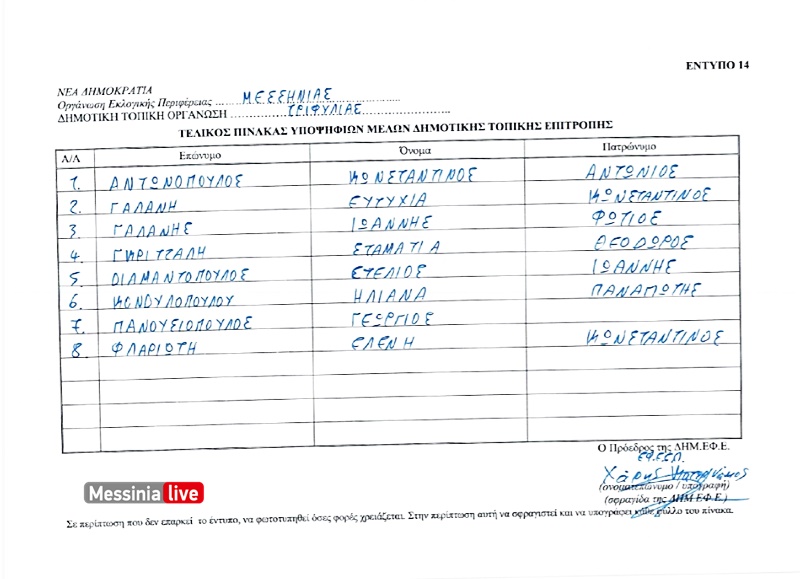 ΕΝΤΥΠΟ 14
ΝΕΑ ΔΗΜΟΚΡΑΤΙΑ
Οργάνωση Εκλογικής Περιφέρειας ... ΜΕΣΣΗΝΙΑΣ
ΔΗΜΟΤΙΚΗ ΤΟΠΙΚΗ ΟΡΓΑΝΩΣΗ ... ΤΡΙΦΥΛΙΑΣ
ΤΕΛΙΚΟΣ ΠΙΝΑΚΑΣ ΥΠΟΨΗΦΙΩΝ ΜΕΛΩΝ ΔΗΜΟΤΙΚΗΣ ΤΟΠΙΚΗΣ ΕΠΙΤΡΟΠΗΣ
Α/Α Επώνυμο Όνομα Πατρώνυμο
1. ΑΝΤΩΝΟΠΟΥΛΟΣ ΚΩΝΣΤΑΝΤΙΝΟΣ ΑΝΤΩΝΙΟΣ
2. ΓΑΛΑΝΗ ΕΥΤΥΧΙΑ ΚΩΝΣΤΑΝΤΙΝΟΣ
3. ΓΑΛΑΝΗΣ ΙΩΑΝΝΗΣ ΦΩΤΙΟΣ
4. ΓΚΡΙΤΖΑΛΗ ΣΤΑΜΑΤΙΑ ΘΕΟΔΩΡΟΣ
5. ΔΙΑΜΑΝΤΟΠΟΥΛΟΣ ΣΤΕΛΙΟΣ ΙΩΑΝΝΗΣ
6. ΚΟΝΔΥΛΟΠΟΥΛΟΥ ΗΛΙΑΝΑ ΠΑΝΑΓΙΩΤΗΣ
7. ΠΑΝΟΥΣΙΟΠΟΥΛΟΣ ΓΕΩΡΓΙΟΣ
8. ΦΛΑΡΙΩΤΗ ΕΛΕΝΗ ΚΩΝΣΤΑΝΤΙΝΟΣ
Ο Πρόεδρος της ΔΗΜ.ΕΦ.Ε.
Χάρης
(ονοματεπώνυμο / υπογραφή)
(σφραγίδα της ΔΗΜ ΕΦ.Ε.)
Messinia live
Σε περίπτωση που δεν επαρκεί το έντυπο, να φωτοτυπηθεί όσες φορές χρειάζεται. Στην περίπτωση αυτή να σφραγιστεί και να υπογράφει κάθε φύλλο του πίνακα.